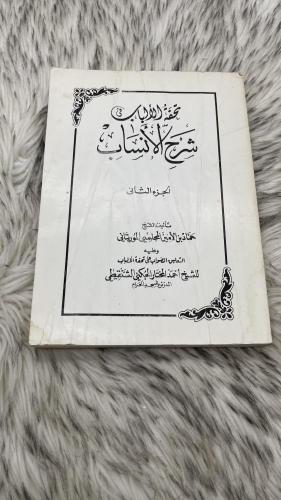 تحفة الألباب في
شرح الأنساب
الجزء الثاني
تأليف الشيخ
حماد بن الأمين المجلسي الموريتاني
وعليه
التعليق الصواب على تحفة الألباب
للشيخ أحمد المختار الجكني الشنقيطي
المدرس بالمسجد الحرام